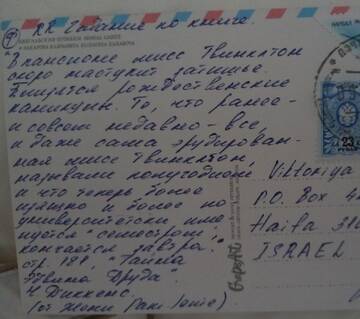 RR Задание по книге.
"В пансионе мисс Твинклтон
скоро наступит затишье.
Близятся рождественские
каникулы. То, что ранее -
и совсем недавно - все,
и даже сама эрудирован-
ная мисс Твинклтон,
называли полугодием
и что теперь более
изящно и более по
университетски име-
нуется "семестром",
кончается завтра."
стр. 188, "Тайна
Эдвина Друда"
Ч. Диккенс.
(от Жени
Viktoriya
P.O. Box
Haifa
ISRAEL
23